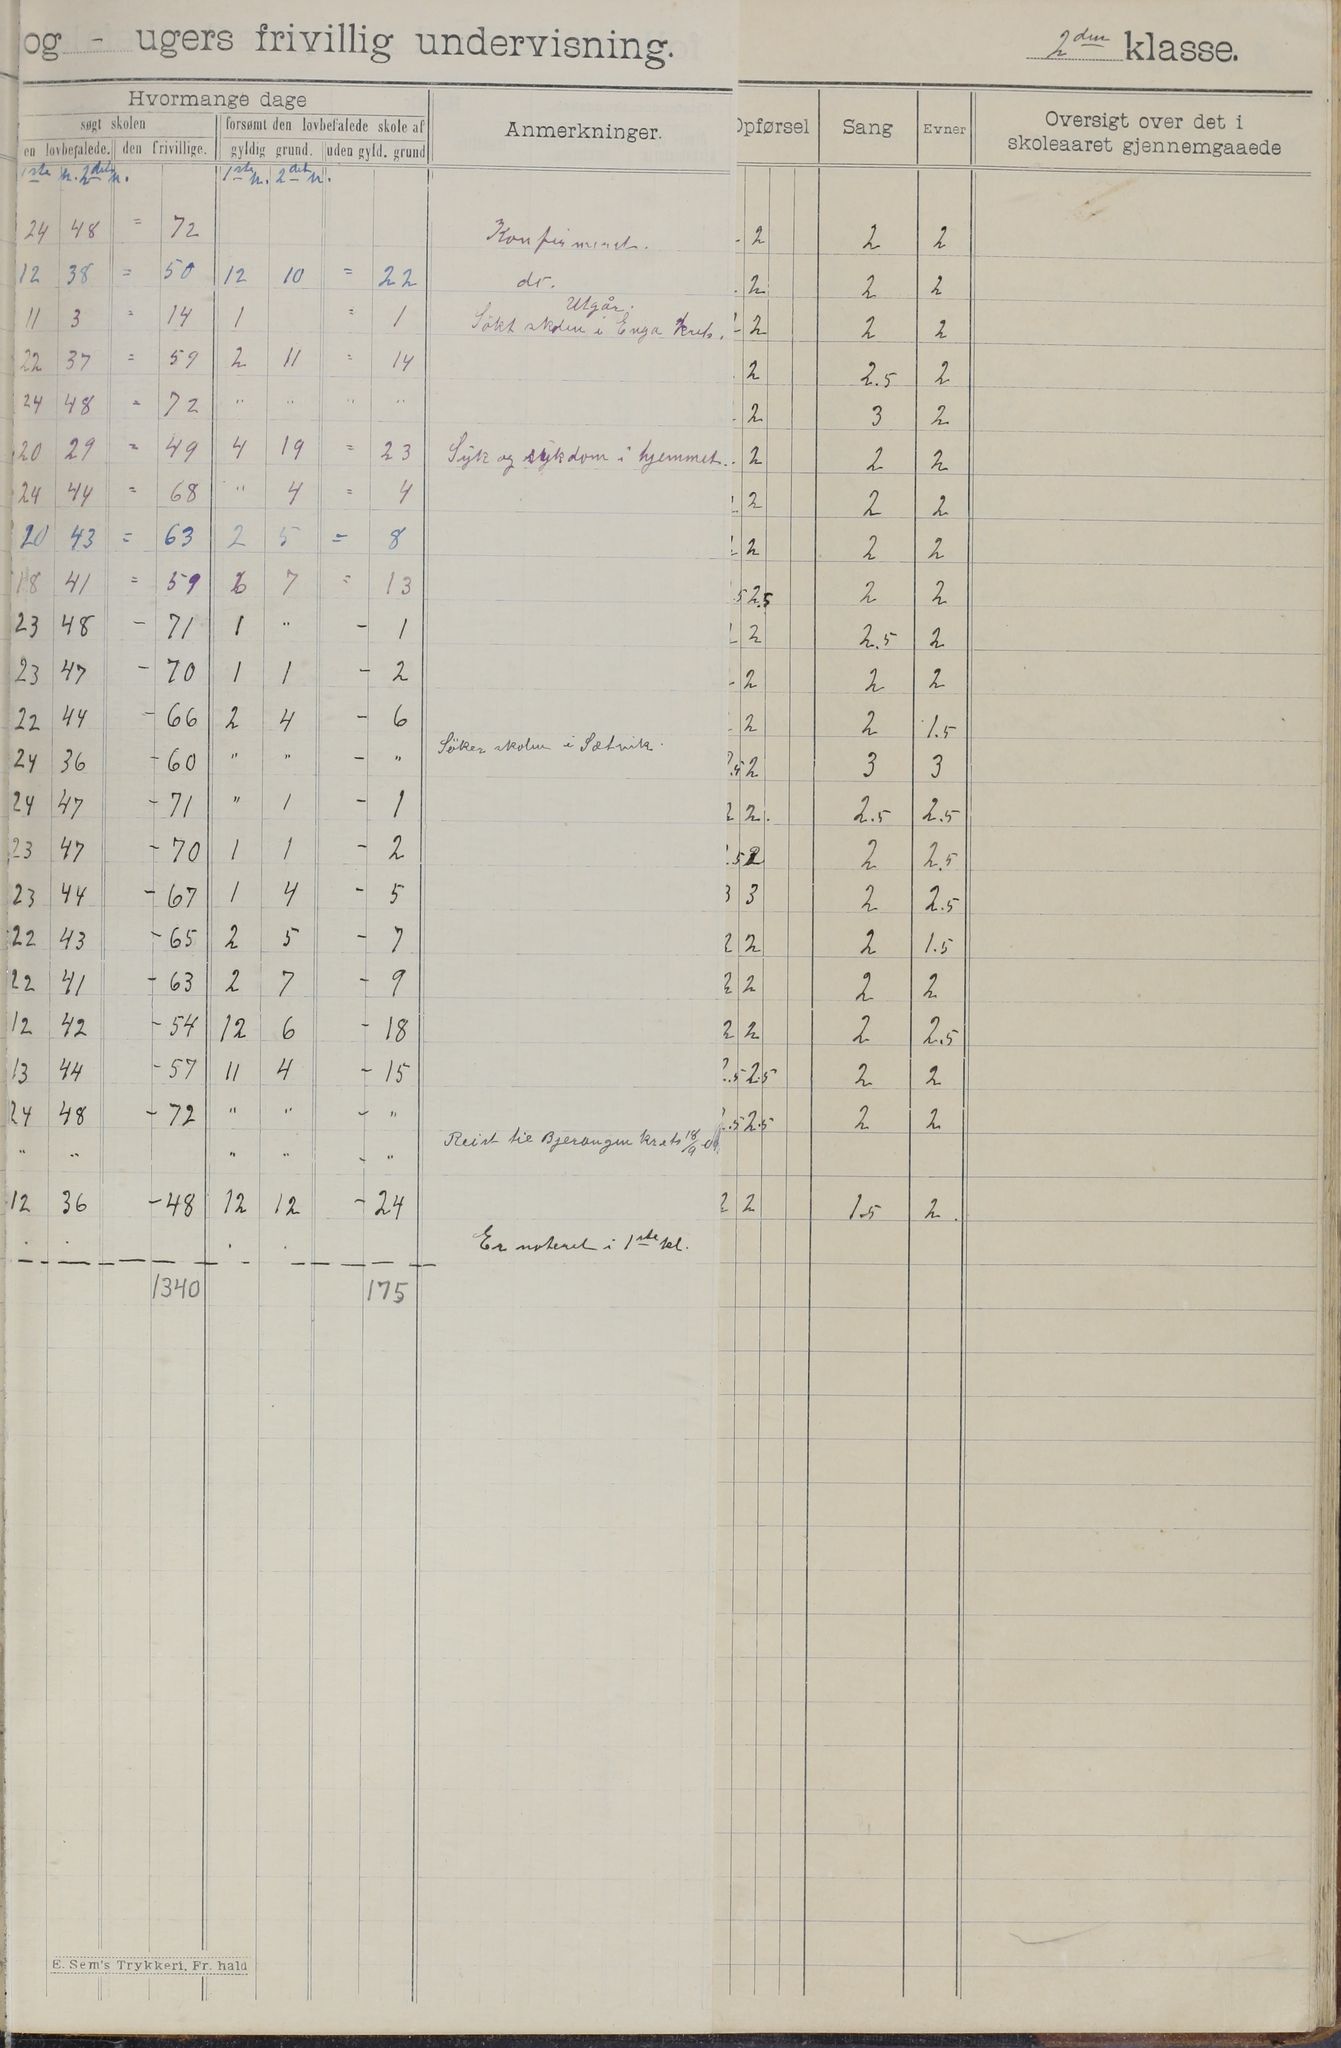 og - ugers frivillig undervisning.
2den klasse.
Hvormange dage
Anmerkninger.
Opførsel Sang Evner Oversigt over det i
skoleaaret gjennemgaaede
søgt skolen forsømt den lovbefalede skole af
en lovbefalede. den frivillige. gyldig grund. uden gyld. grund
1ste h. 2det h. 1ste h. 2det h.
24 48 = 72 Konfirmeret. 2 2 2
12 38 = 50 12 10 = 22 do. 2 2 2
Utgår.
11 3 = 14 1 = 1 Søkt skolen i Enga krets. 2 2 2
22 37 = 59 2 11 = 14 2 2.5 2
24 48 = 72 " " " " 2 3 2
20 29 = 49 4 19 = 23 Syk og sykdom i hjemmet. 2 2 2
24 44 = 68 " 4 = 4 2 2 2
20 43 = 63 2 5 = 8 2 2 2
18 41 = 59 6 7 = 13 5 2.5 2 2
23 48 - 71 1 " - 1 2 2.5 2
23 47 - 70 1 1 - 2 2 2 2
22 44 - 66 2 4 - 6 2 2 1.5
24 36 - 60 " " - " Søker skolen i Sætvik. .5 2 3 3
24 47 - 71 " 1 - 1 2 2. 2.5 2.5
23 47 - 70 1 1 - 2 .5 2 2 2.5
23 44 - 67 1 4 - 5 3 3 2 2.5
22 43 - 65 2 5 - 7 2 2 2 1.5
22 41 - 63 2 7 - 9 2 2 2 2
12 42 - 54 12 6 - 18 2 2 2 2.5
13 44 - 57 11 4 - 15 2.5 2.5 2 2
24 48 - 72 " " - " .5 2.5 2 2
" " " " - " Reist til Bjerangen krets 18/9
12 36 - 48 12 12 - 24 2 2 1.5 2.
Er noteret i 1ste kl.
1340 175
E. Sem's Trykkeri, Fr. hald